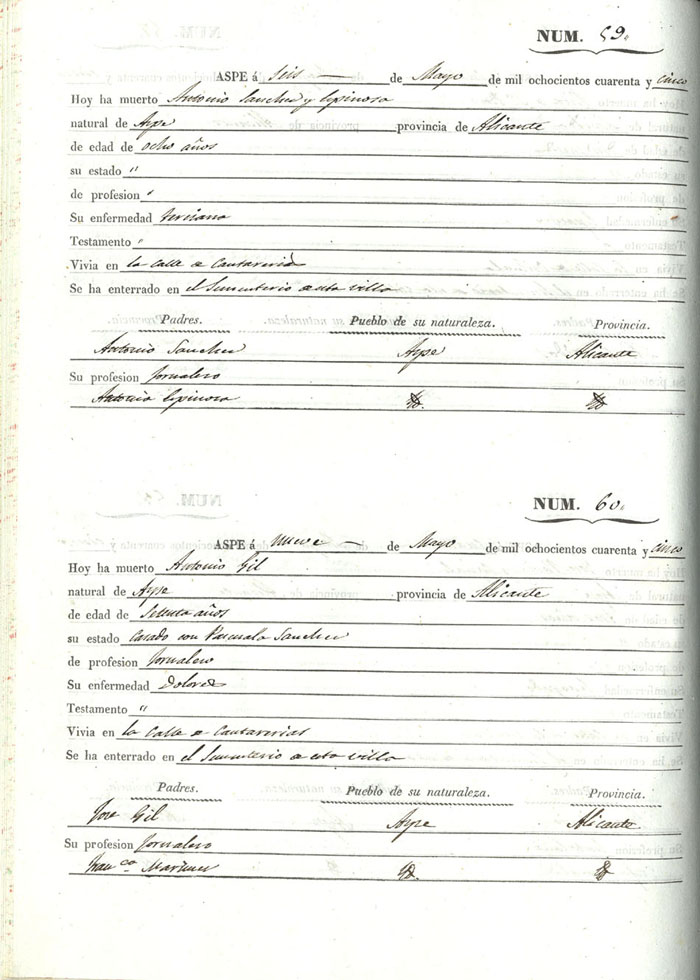 NUM. 59.
ASPE á Seis de Mayo de mil ochocientos cuarenta y cinco
Hoy ha muerto Antonio Sanchez y Espinosa
natural de Aspe provincia de Alicante
de edad de ocho años
su estado "
de profesion "
Su enfermedad terciana
Testamento "
Vivia en la Calle
Se ha enterrado en el Sementerio a esta villa
Padres. Pueblo de su naturaleza. Provincia.
Antonio Sanchez Aspe Alicante
Su profesion Jornalero
Antonia Espinosa
NUM. 60.
ASPE á nueve de Mayo de mil ochocientos cuarenta y cinco
Hoy ha muerto Antonio Gil
natural de Aspe provincia de Alicante
de edad de años
su estado Casado con Pascuala Sanchez
de profesion Jornalero
Su enfermedad Dolores
Testamento "
Vivia en la Calle
Se ha enterrado en el Sementerio a esta villa
Padres. Pueblo de su naturaleza. Provincia.
Jose Gil Aspe Alicante
Su profesion Jornalero
Fran.ca